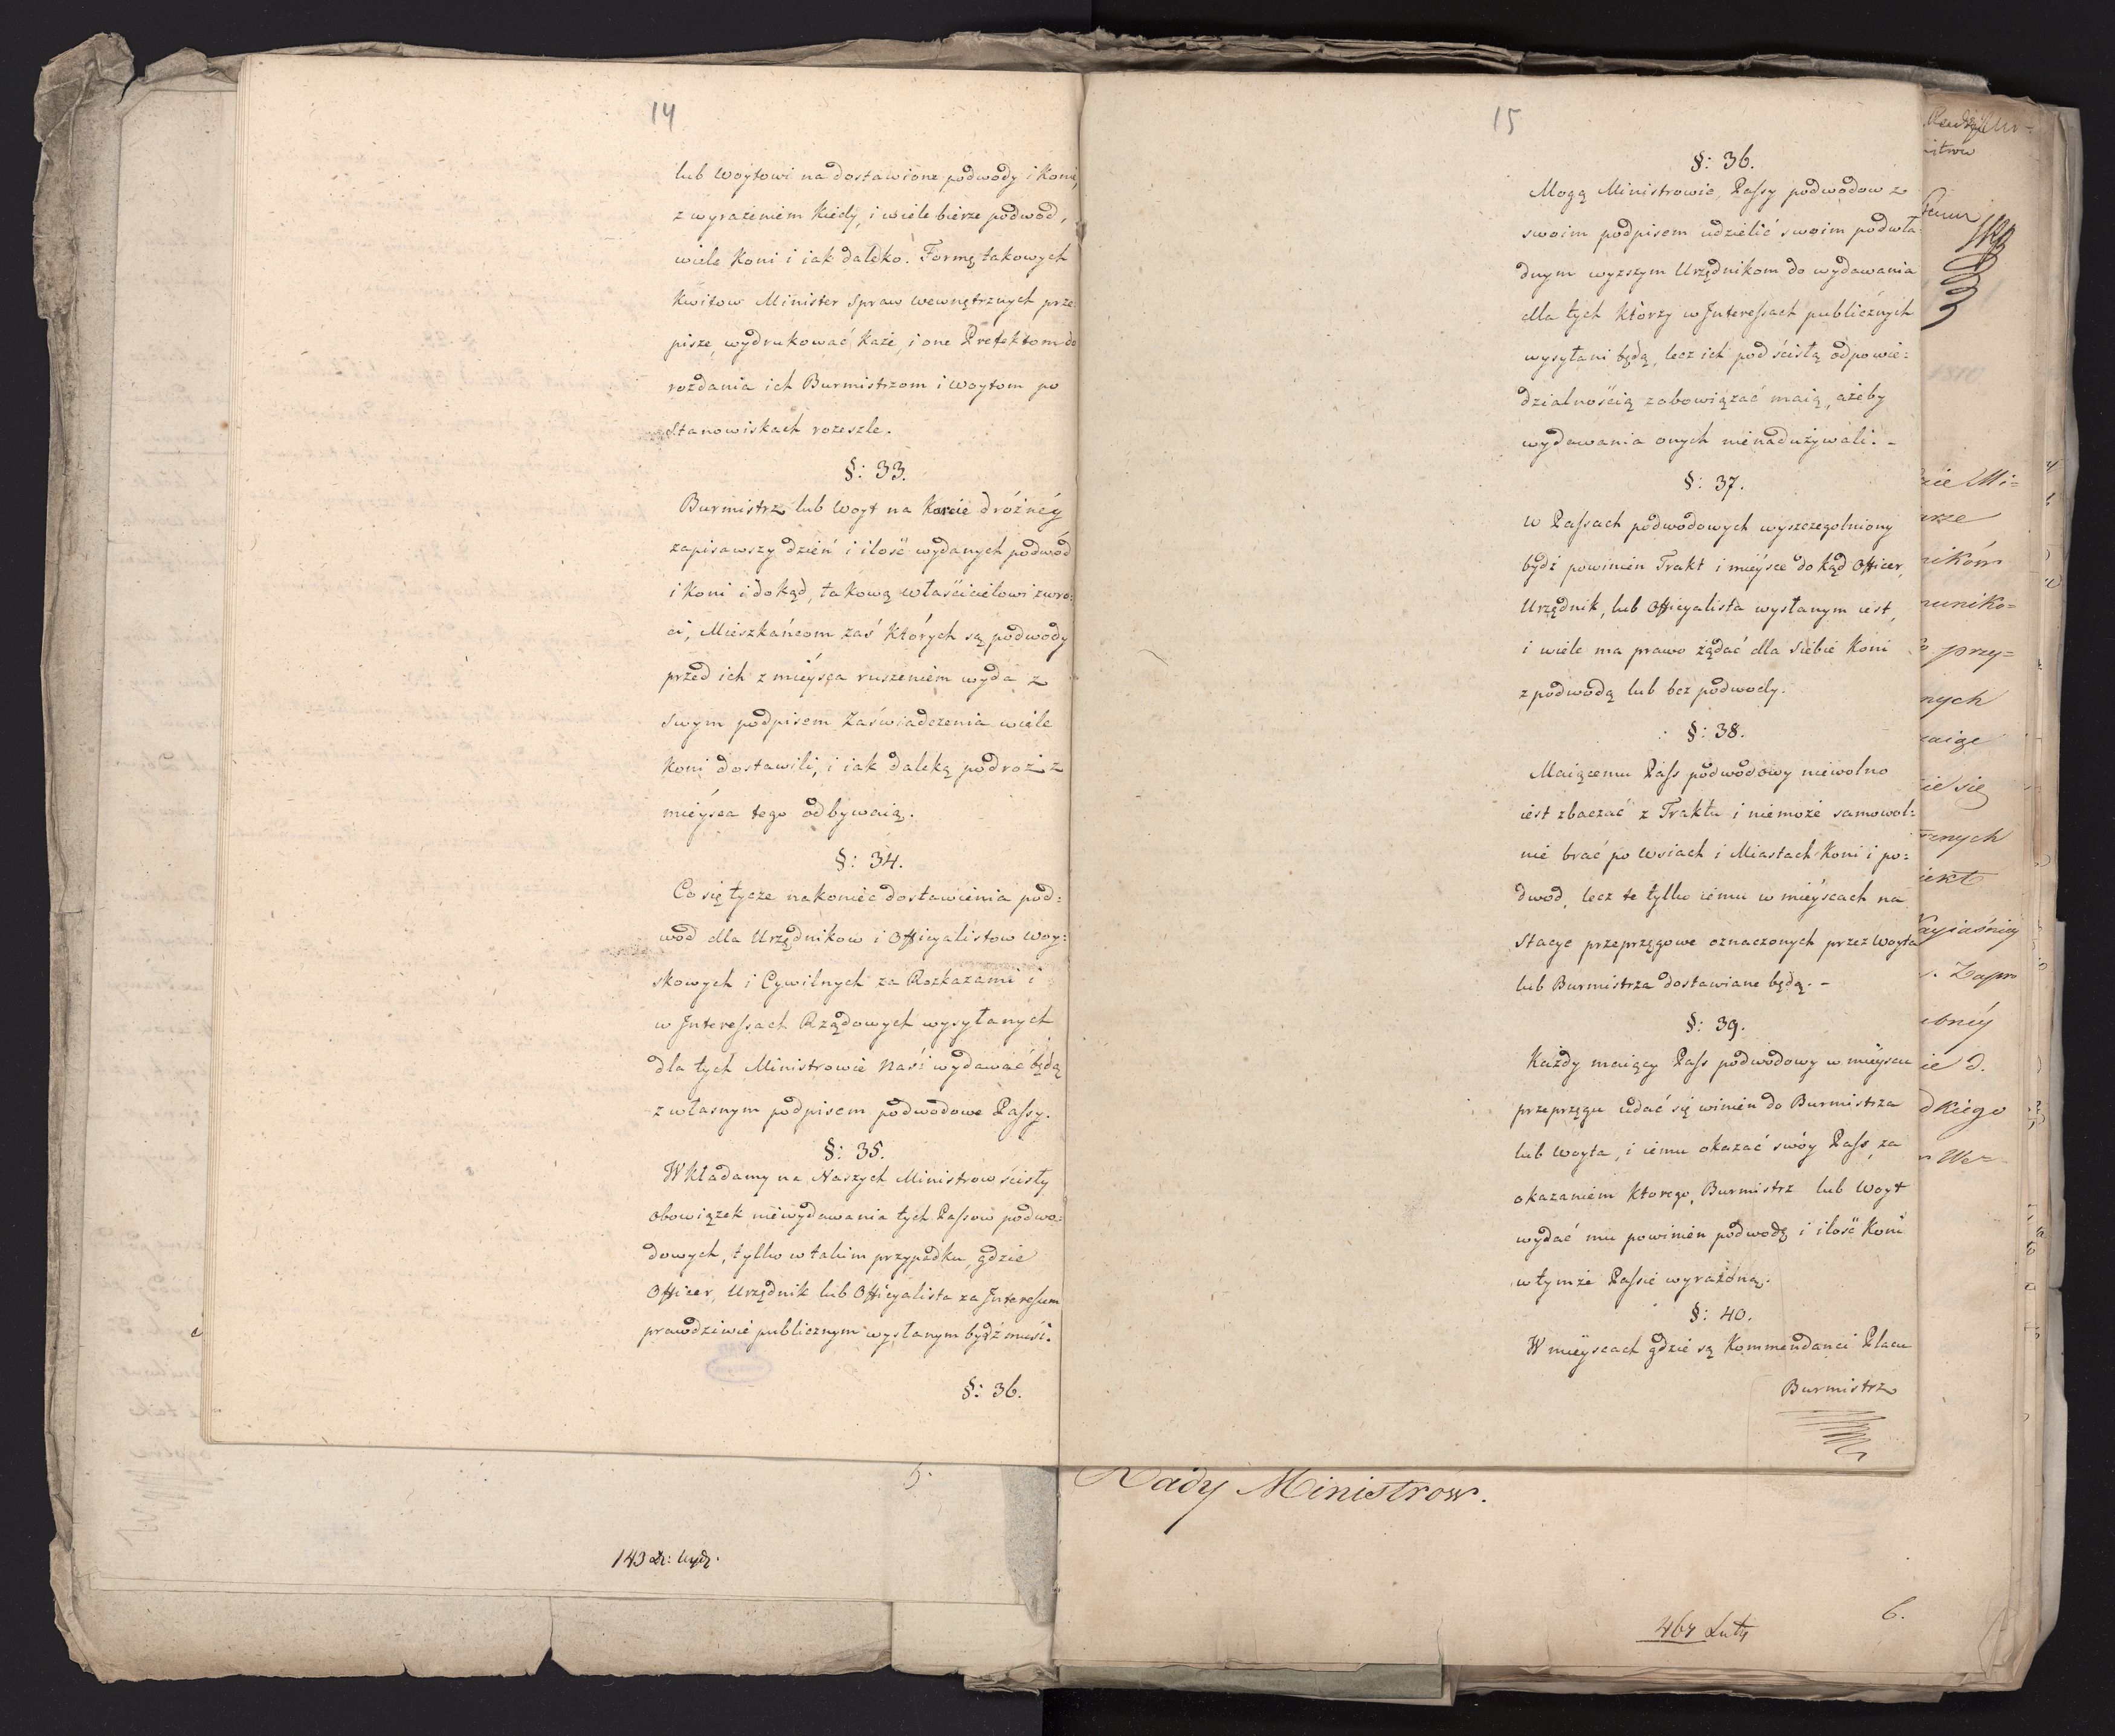 14
lub Woytowi na dostawione podwody i Konie,
z wyrażeniem Kiedy, i wiele bierze podwod,
wiele Koni i iak daleko. Formę takowych
Kwitow Minister Spraw Wewnętrznych prze:
pisze, wydrukować każe, i one Prefektom do
rozdania ich Burmistrzom i Woytom po
Stanowiskach rozeszle.
§: 33.
Burmistrz lub Woyt na Karcie dróżnéy
zapisawszy dzień i ilość wydanych podwód
i Koni i dokąd, takową właścicielowi zwró:
ci, Mieszkańcom zaś których są podwody
przed ich z mieysca ruszeniem wyda z
swym podpisem Zaświadczenia wiele
Koni dostawili, i iak daleką podroż z
mieysca tego odbywaią.
§: 34.
Co się tycze nakoniec dostawienia pod:
wod dla Urzędnikow i Officyalistow Woy:
skowych i Cywilnych za Rozkazami i
w Interessach Rządowych wysyłanych
dla tych Ministrowie Nasi wydawać będą
z własnym podpisem podwodowe Passy.
§: 35.
Wkładamy na Naszych Ministrow ścisły
obowiązek niewydawania tych Passow podwo:
dowych, tylko w takim przypadku, gdzie
Officer, Urzędnik lub Officyalista za Interesem
prawdziwie publicznym wysłanym bydź musi.
§: 36.
143 Dz: Wydz.
5.
15
§: 36.
Mogą Ministrowie, Passy podwodow z
swoim podpisem udzielić swoim podwła:
dnym wyzszym Urzędnikom do wydawania
dla tych Którzy w Interessach publicznych
wysyłani będą, lecz ich pod ścisłą odpowie:
dzialnością zobowiązać maią, ażeby
wydawania onych nienadużywali. -
§: 37.
W Passach podwodowych wyszczegolniony
bydź powinien Trakt i mieysce dokąd Officer,
Urzędnik, lub Officyalista wysłanym iest,
i wiele ma prawo żądać dla siebie Koni
z podwodą lub bez podwody.
§: 38.
Maiącemu Pass podwodowy niewolno
iest zbaczać z Traktu i niemoże samowol:
nie brać po Wsiach i Miastach Koni i po:
dwod, lecz te tylko iemu w mieyscach na
Stacye przeprzęgowe oznaczonych przez Woyta
lub Burmistrza dostawiane będą. -
§: 39.
Każdy maiący Pass podwodowy w mieyscu
przeprzęgu udać się winien do Burmistrza
lub Woyta, i iemu okazać swóy Pass, za
okazaniem Ktorego, Burmistrz lub Woyt
wydać mu powinien podwodę i ilość Koni
w tymże Passie wyrażoną.
§: 40.
W mieyscach gdzie są Kommendanci Placu
Burmistrz
Rady Ministrów.
6.
nych
ie się
dkiego